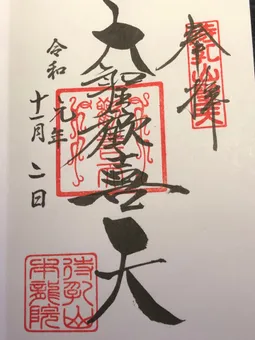 奉拝
大聖歓喜天
令和元年
十一月二日
待乳山
本龍院